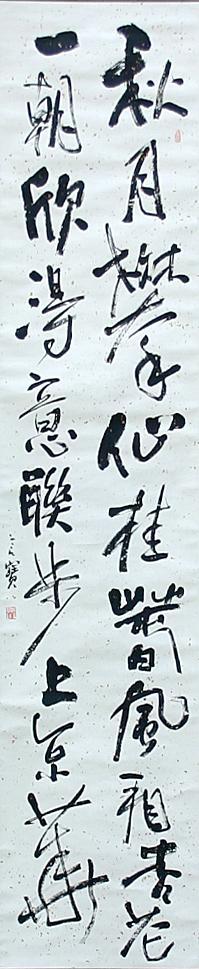 秋月攀仙桂春風看杏花
一朝欣得意聯步上京華